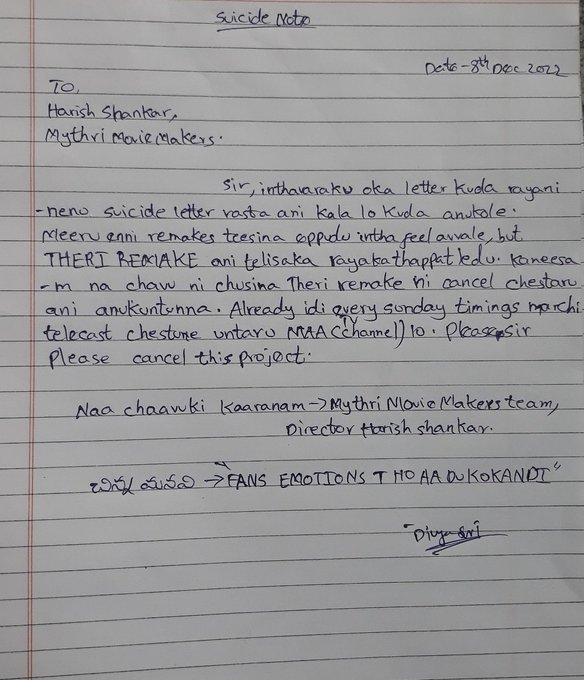 Suicide Note
Date - 8th Dec 2022
TO,
Harish Shankar,
Mythri Movie Makers.
Sir, inthavaraku oka letter kuda rayani
-nenu suicide letter rasta ani kala lo kuda anukole.
Meeru enni remakes teesina appudu intha feel avvale, but
THERI REMAKE ani telisaka rayakathappatledu. Kaneesa
-m na chavu ni chusina Theri remake ni cancel chestaru
ani anukuntunna. Already idi every sunday timings marchi
telecast chestune untaru MAA TV (channel) lo. Please sir
Please cancel this project.
Naa chaavuki kaaranam → Mythri Movie Makers team,
Director Harish shankar.
చిన్న మనవి → "FANS EMOTIONS THO AADUKOKANDI"
- Divya Sri